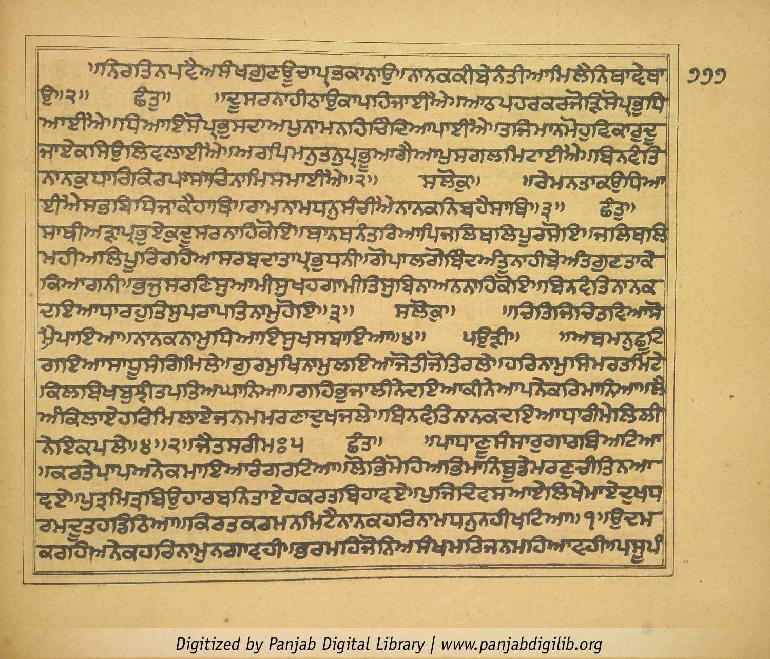 ॥ਨਿਰਤਿਨਪਵੈਅਸੰਖਗੁਣਊਚਾਪ੍ਰਭਕਾਨਾਉ॥ਨਾਨਕਕੀਬੇਨੰਤੀਆਮਿਲੈਨਿਥਾਵੇਥਾ ੧੭੭
ਉ॥੨॥ ਛੰਤੁ॥ ॥ਦੂਸਰਨਾਹੀਠਾਉਕਾਪਹਿਜਾਈਐ॥ਆਠਪਹਰਕਰਜੋੜਿਸੋਪ੍ਰਭੁਧਿ
ਆਈਐ॥ਧਿਆਇਸੋਪ੍ਰਭੁਸਦਾਅਪੁਨਾਮਨਹਿਚਿੰਦਿਆਪਾਈਐ॥ਤਜਿਮਾਨਮੋਹੁਵਿਕਾਰੁਦੂ
ਜਾਏਕਸਿਉਲਿਵਲਾਈਐ॥ਅਰਪਿਮਨੁਤਨੁਪ੍ਰਭੂਆਗੈਆਪੁਸਗਲਮਿਟਾਈਐ॥ਬਿਨਵੰਤਿ
ਨਾਨਕੁਧਾਰਿਕਿਰਪਾਸਾਚਿਨਾਮਿਸਮਾਈਐ॥੨॥ ਸਲੋਕੁ॥ ॥ਰੇਮਨਤਾਕਉਧਿਆ
ਈਐਸਭਬਿਧਿਜਾਕੈਹਾਥਿ॥ਰਾਮਨਾਮਧਨੁਸੰਚੀਐਨਾਨਕਨਿਬਹੈਸਾਥਿ॥੩॥ ਛੰਤੁ॥
ਸਾਥੀਅੜਾਪ੍ਰਭੁਏਕੁਦੂਸਰਨਾਹਿਕੋਇ॥ਥਾਨਥਨੰਤਰਿਆਪਿਜਲਿਥਲਿਪੂਰਸੋਇ॥ਜਲਿਥਲਿ
ਮਹੀਅਲਿਪੂਰਿਰਹਿਆਸਰਬਦਾਤਾਪ੍ਰਭੁਧਨੀ॥ਗੋਪਾਲਗੋਬਿੰਦਅੰਤੁਨਾਹੀਬੇਅੰਤਗੁਣਤਾਕੇ
ਕਿਆਗਨੀ॥ਭਜੁਸਰਣਿਸੁਆਮੀਸੁਖਹਗਾਮੀਤਿਸੁਬਿਨਾਅਨਨਾਹਿਕੋਇ॥ਬਿਨਵੰਤਿਨਾਨਕ
ਦਇਆਧਾਰਹੁਤਿਸੁਪਰਾਪਤਿਨਾਮੁਹੋਇ॥੩॥ ਸਲੋਕੁ॥ ॥ਚਿਤਿਜਿਚਿਤਵਿਆਸੋ
ਮੈਪਾਇਆ॥ਨਾਨਕਨਾਮੁਧਿਆਇਸੁਖਸਬਾਇਆ॥੪॥ ਪਉੜੀ॥ ॥ਅਬਮਨੁਛੂਟਿ
ਗਇਆਸਾਧੂਸੰਗਿਮਿਲੇ॥ਗੁਰਮੁਖਿਨਾਮੁਲਇਆਜੋਤੀਜੋਤਿਰਲੇ॥ਹਰਿਨਾਮੁਸਿਮਰਤਮਿਟੇ
ਕਿਲਬਿਖਬੁਝੀਤਪਤਿਅਘਾਨਿਆ॥ਗਹਿਭੁਜਾਲੀਨੇਦਇਆਕੀਨੇਆਪਨੇਕਰਿਮਾਨਿਆ॥ਲੈ
ਅੰਕਿਲਾਏਹਰਿਮਿਲਾਏਜਨਮਮਰਣਾਦੁਖਜਲੇ॥ਬਿਨਵੰਤਿਨਾਨਕਦਇਆਧਾਰੀਮੇਲਿਲੀ
ਨੇਇਕਪਲੇ॥੪॥੨॥ਜੈਤਸਰੀਮਃ੫ ਛੰਤਾ॥ ॥ਪਾਧਾਣੂਸੰਸਾਰੁਗਾਰਬਿਅਟਿਆ
॥ਕਰਤੇਪਾਪਅਨੇਕਮਾਇਆਰੰਗਰਟਿਆ॥ਲੋਭਿਮੋਹਿਅਭਿਮਾਨਿਬੂਡੇਮਰਣੁਚੀਤਿਨਆ
ਵਏ॥ਪੁਤ੍ਰਮਿਤ੍ਰਬਿਉਹਾਰਬਨਿਤਾਏਹਕਰਤਬਿਹਾਵਏ॥ਪੁਜਿਦਿਵਸਆਏਲਿਖੇਮਾਏਦੁਖਧ
ਰਮਦੂਤਹਡਿਠਿਆ॥ਕਿਰਤਕਰਮਨਮਿਟੈਨਾਨਕਹਰਿਨਾਮਧਨੁਨਹੀਖਟਿਆ॥੧॥ਉਦਮ
ਕਰਹਿਅਨੇਕਹਰਿਨਾਮੁਨਗਾਵਹੀ॥ਭਰਮਹਿਜੋਨਿਅਸੰਖਮਰਿਜਨਮਹਿਆਵਹੀ॥ਪਸੂਪੰ
Digitized by Panjab Digital Library | www.panjabdigilib.org